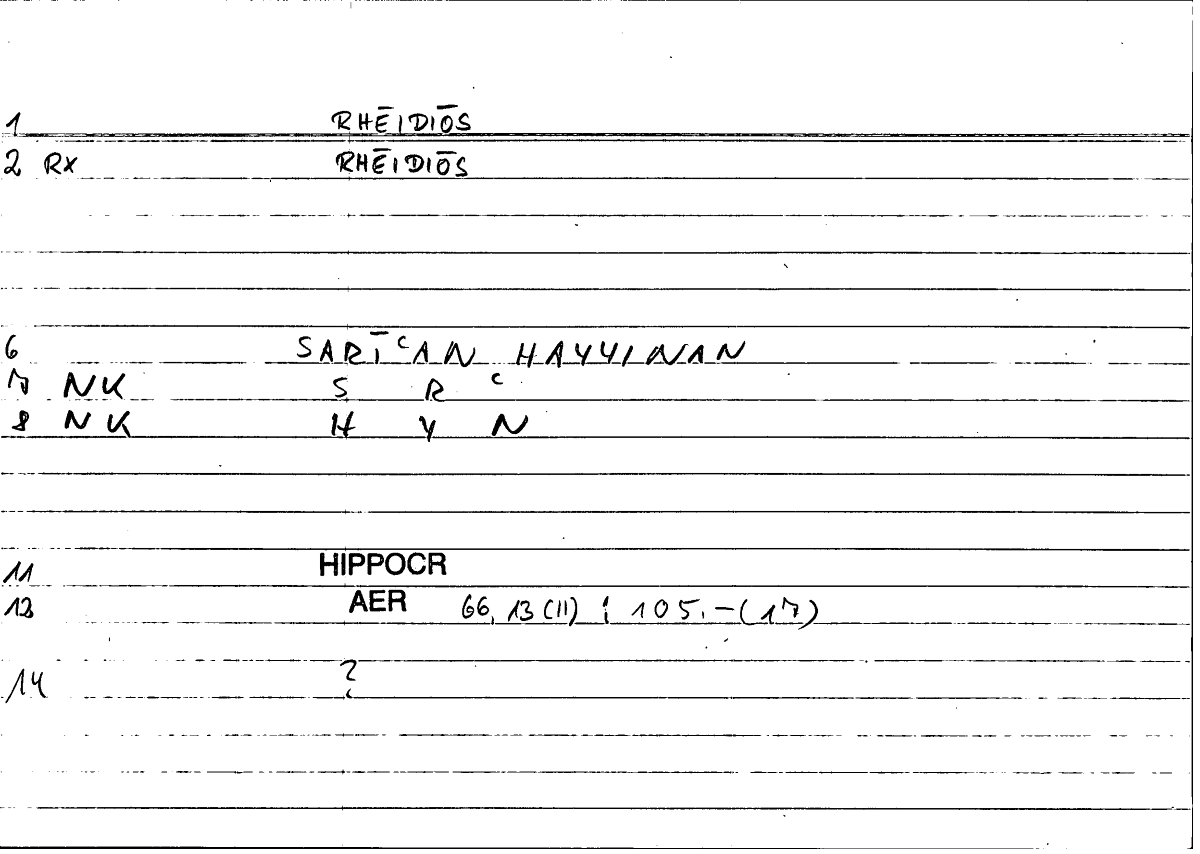 1 RHĒIDIŌS
2 RX RHĒIDIŌS
6 SARĪʿAN HAYYINAN
7 NK S R ʿ
8 NK H Y N
11 HIPPOCR
13 AER 66, 13 (11) ; 105.-(17)
14 ?